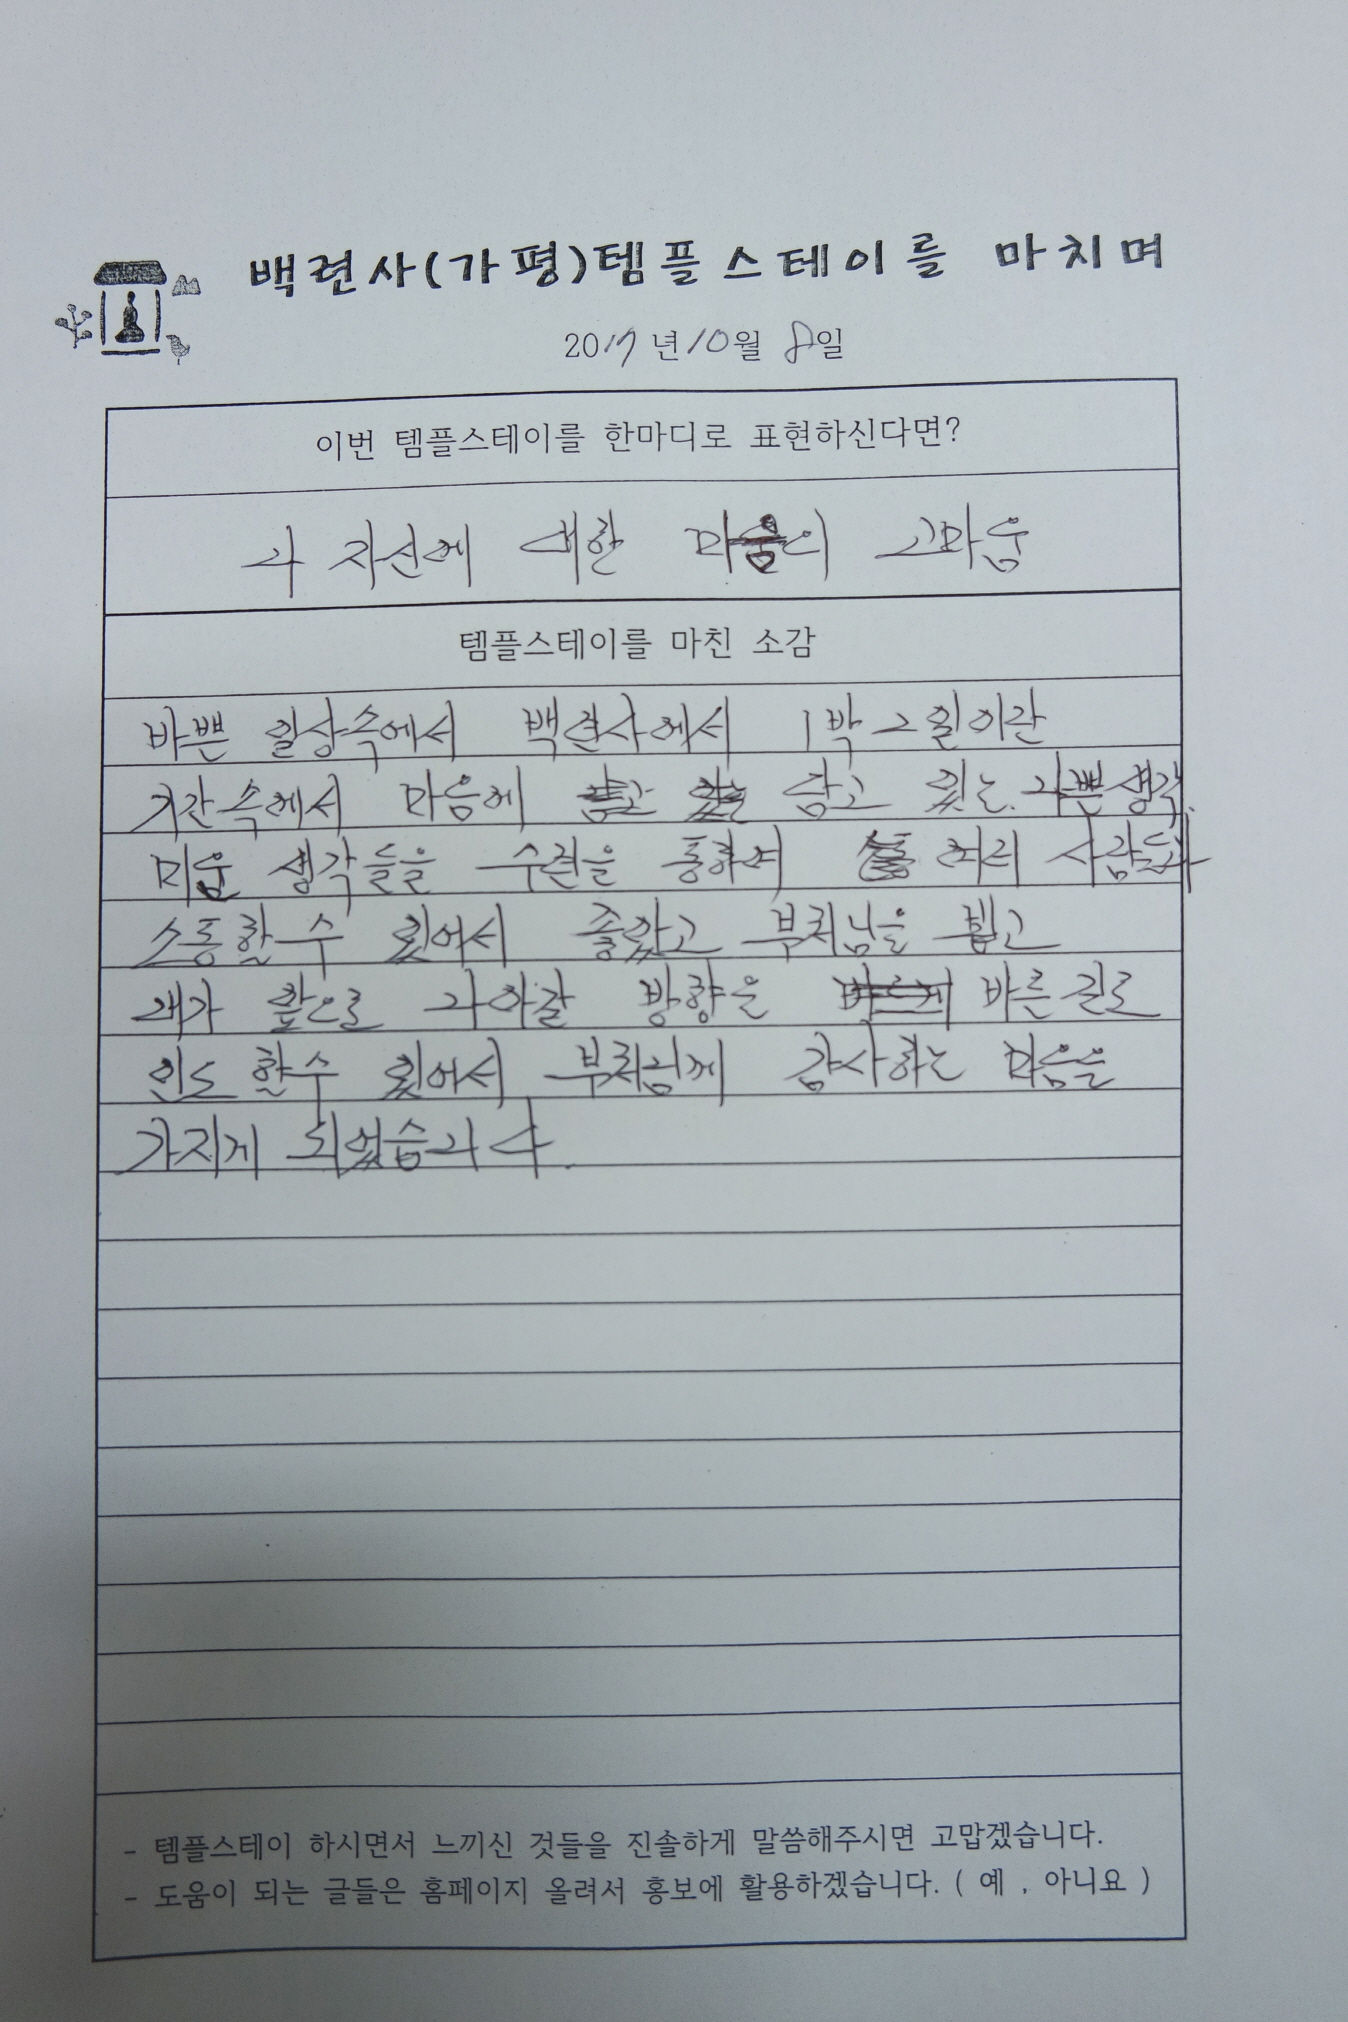 백련사(가평)템플스테이를 마치며
2017년 10월 8일
이번 템플스테이를 한마디로 표현하신다면?
나 자신에 대한 마음의 고마움
템플스테이를 마친 소감
바쁜 일상속에서 백련사에서 1박2일이란
기간속에서 마음에 담고 있는 나쁜생각.
미운 생각들을 수련을 통하여 여러 사람들과
소통할 수 있어서 좋았고 부처님을 뵙고
내가 앞으로 나아갈 방향을 바른길로
인도 할수 있어서 부처님께 감사하는 마음을
가지게 되었습니다.
- 템플스테이 하시면서 느끼신 것들을 진솔하게 말씀해주시면 고맙겠습니다.
- 도움이 되는 글들은 홈페이지 올려서 홍보에 활용하겠습니다. ( 예 , 아니요 )